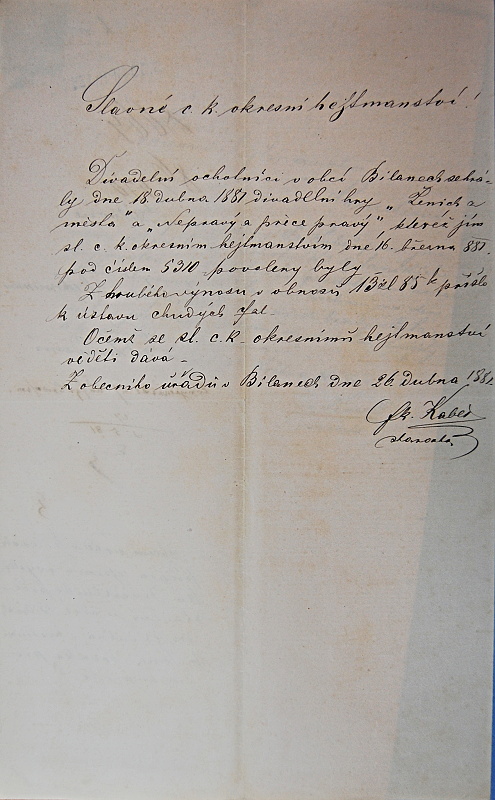 Slavné c. k. okresní hejtmanství!
Divadelní ochotníci v obci Bílanech sehrá-
ly dne 18. dubna 1881 divadelní hry „Ženich z
města" a „Nepravý a přece pravý", kteréž jim
sl. c. k. okresním hejtmanstvím dne 16. března 881.
pod číslem 5310 povoleny byly.
Z hrubého výnosu v obnosu 13 zl 85 k přišlo
k ústavu chudých
Očemž se sl. c. k. okresnímu hejtmanství
věděti dává.
Z obecního úřadu v Bílanech dne 26. dubna 1881
fr. Kabeš
starosta